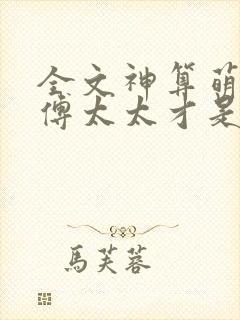 全文神算萌
傅太太才是
馬芙蓉